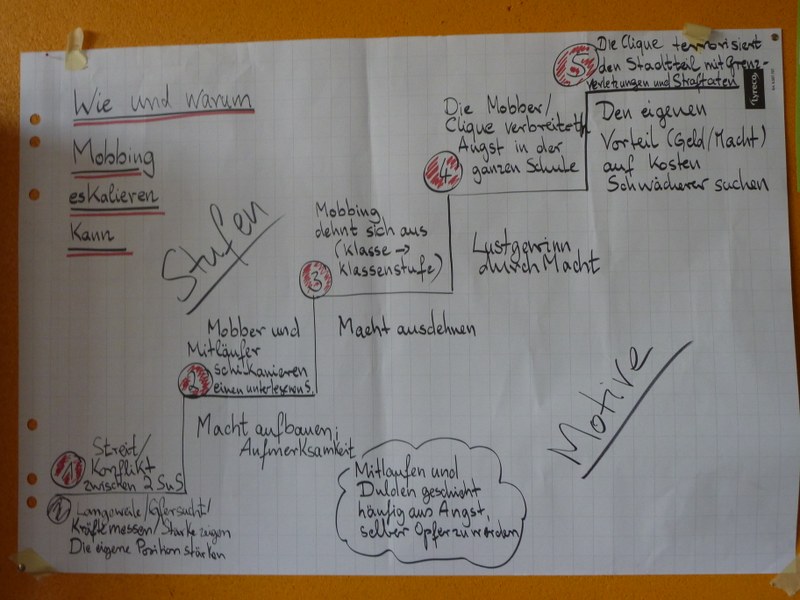 Wie und warum
Mobbing
eskalieren
kann
Stufen
5
Die Clique terrorisiert
den Stadtteil mit Grenz-
verletzungen und Straftaten
tyreco
Den eigenen
Vorteil (Geld/Macht)
auf Kosten
Schwächerer suchen
4
Die Mobber/
Clique verbreitet
Angst in der
ganzen Schule
Lustgewinn
durch Macht
3
Mobbing
dehnt sich aus
(Klasse →
Klassenstufe)
Macht ausdehnen
2
Mobber und
Mitläufer
schikanieren
einen unterlegenen S.
Macht aufbauen;
Aufmerksamkeit
1
Streit/
Konflikt
zwischen 2 SuS
Langeweile/Eifersucht/
Kräfte messen/Stärke zeigen
Die eigene Position stärken
Motive
Mitlaufen und
Dulden geschieht
häufig aus Angst,
selber Opfer zu werden